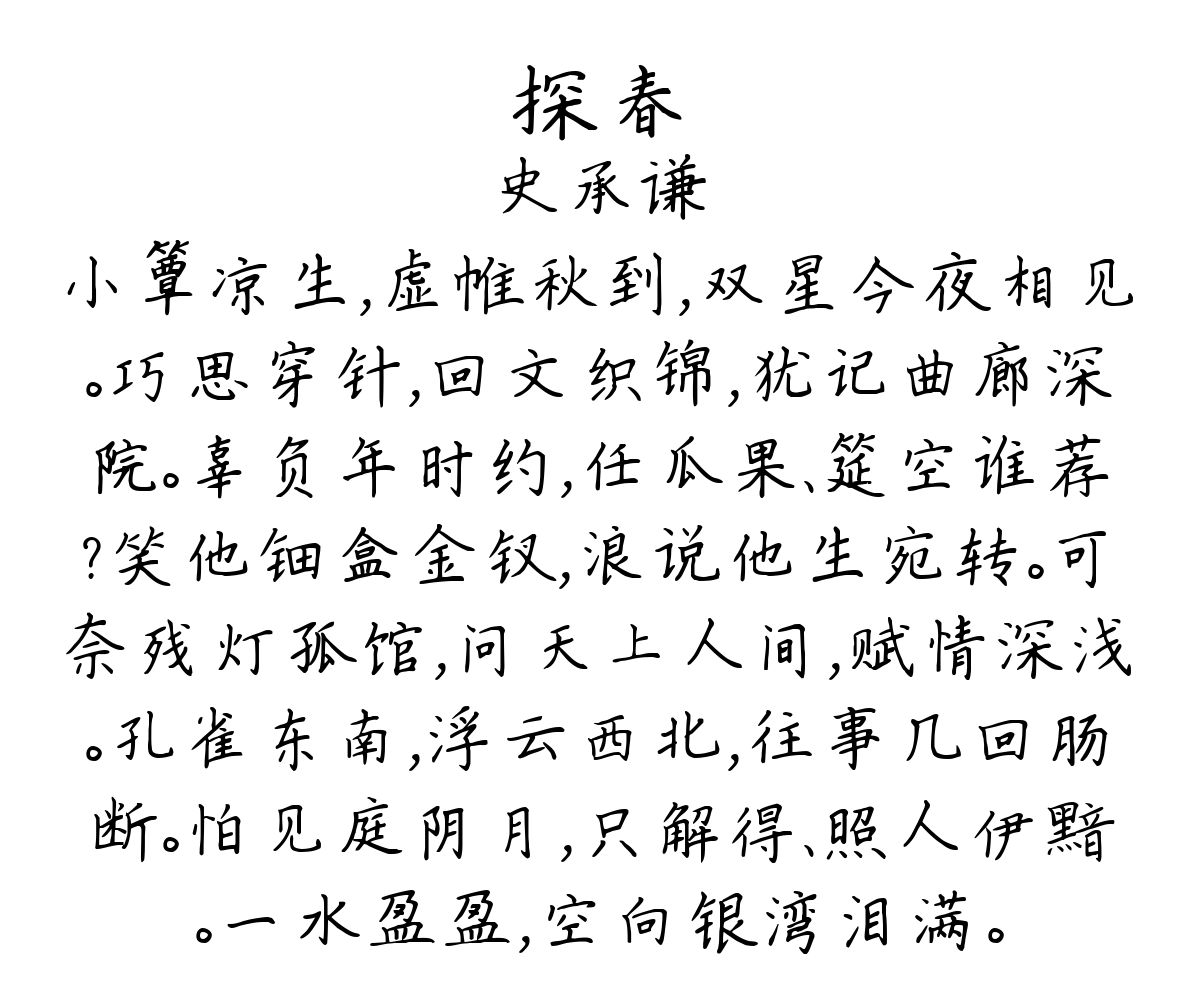 探春
史承谦
小簟凉生,虚帷秋到,双星今夜相见
。巧思穿针,回文织锦,犹记曲廊深
院。辜负年时约,任瓜果、筵空谁荐
?笑他钿盒金钗,浪说他生宛转。可
奈残灯孤馆,问天上人间,赋情深浅
。孔雀东南,浮云西北,往事几回肠
断。怕见庭阴月,只解得、照人伊黯
。一水盈盈,空向银湾泪满。